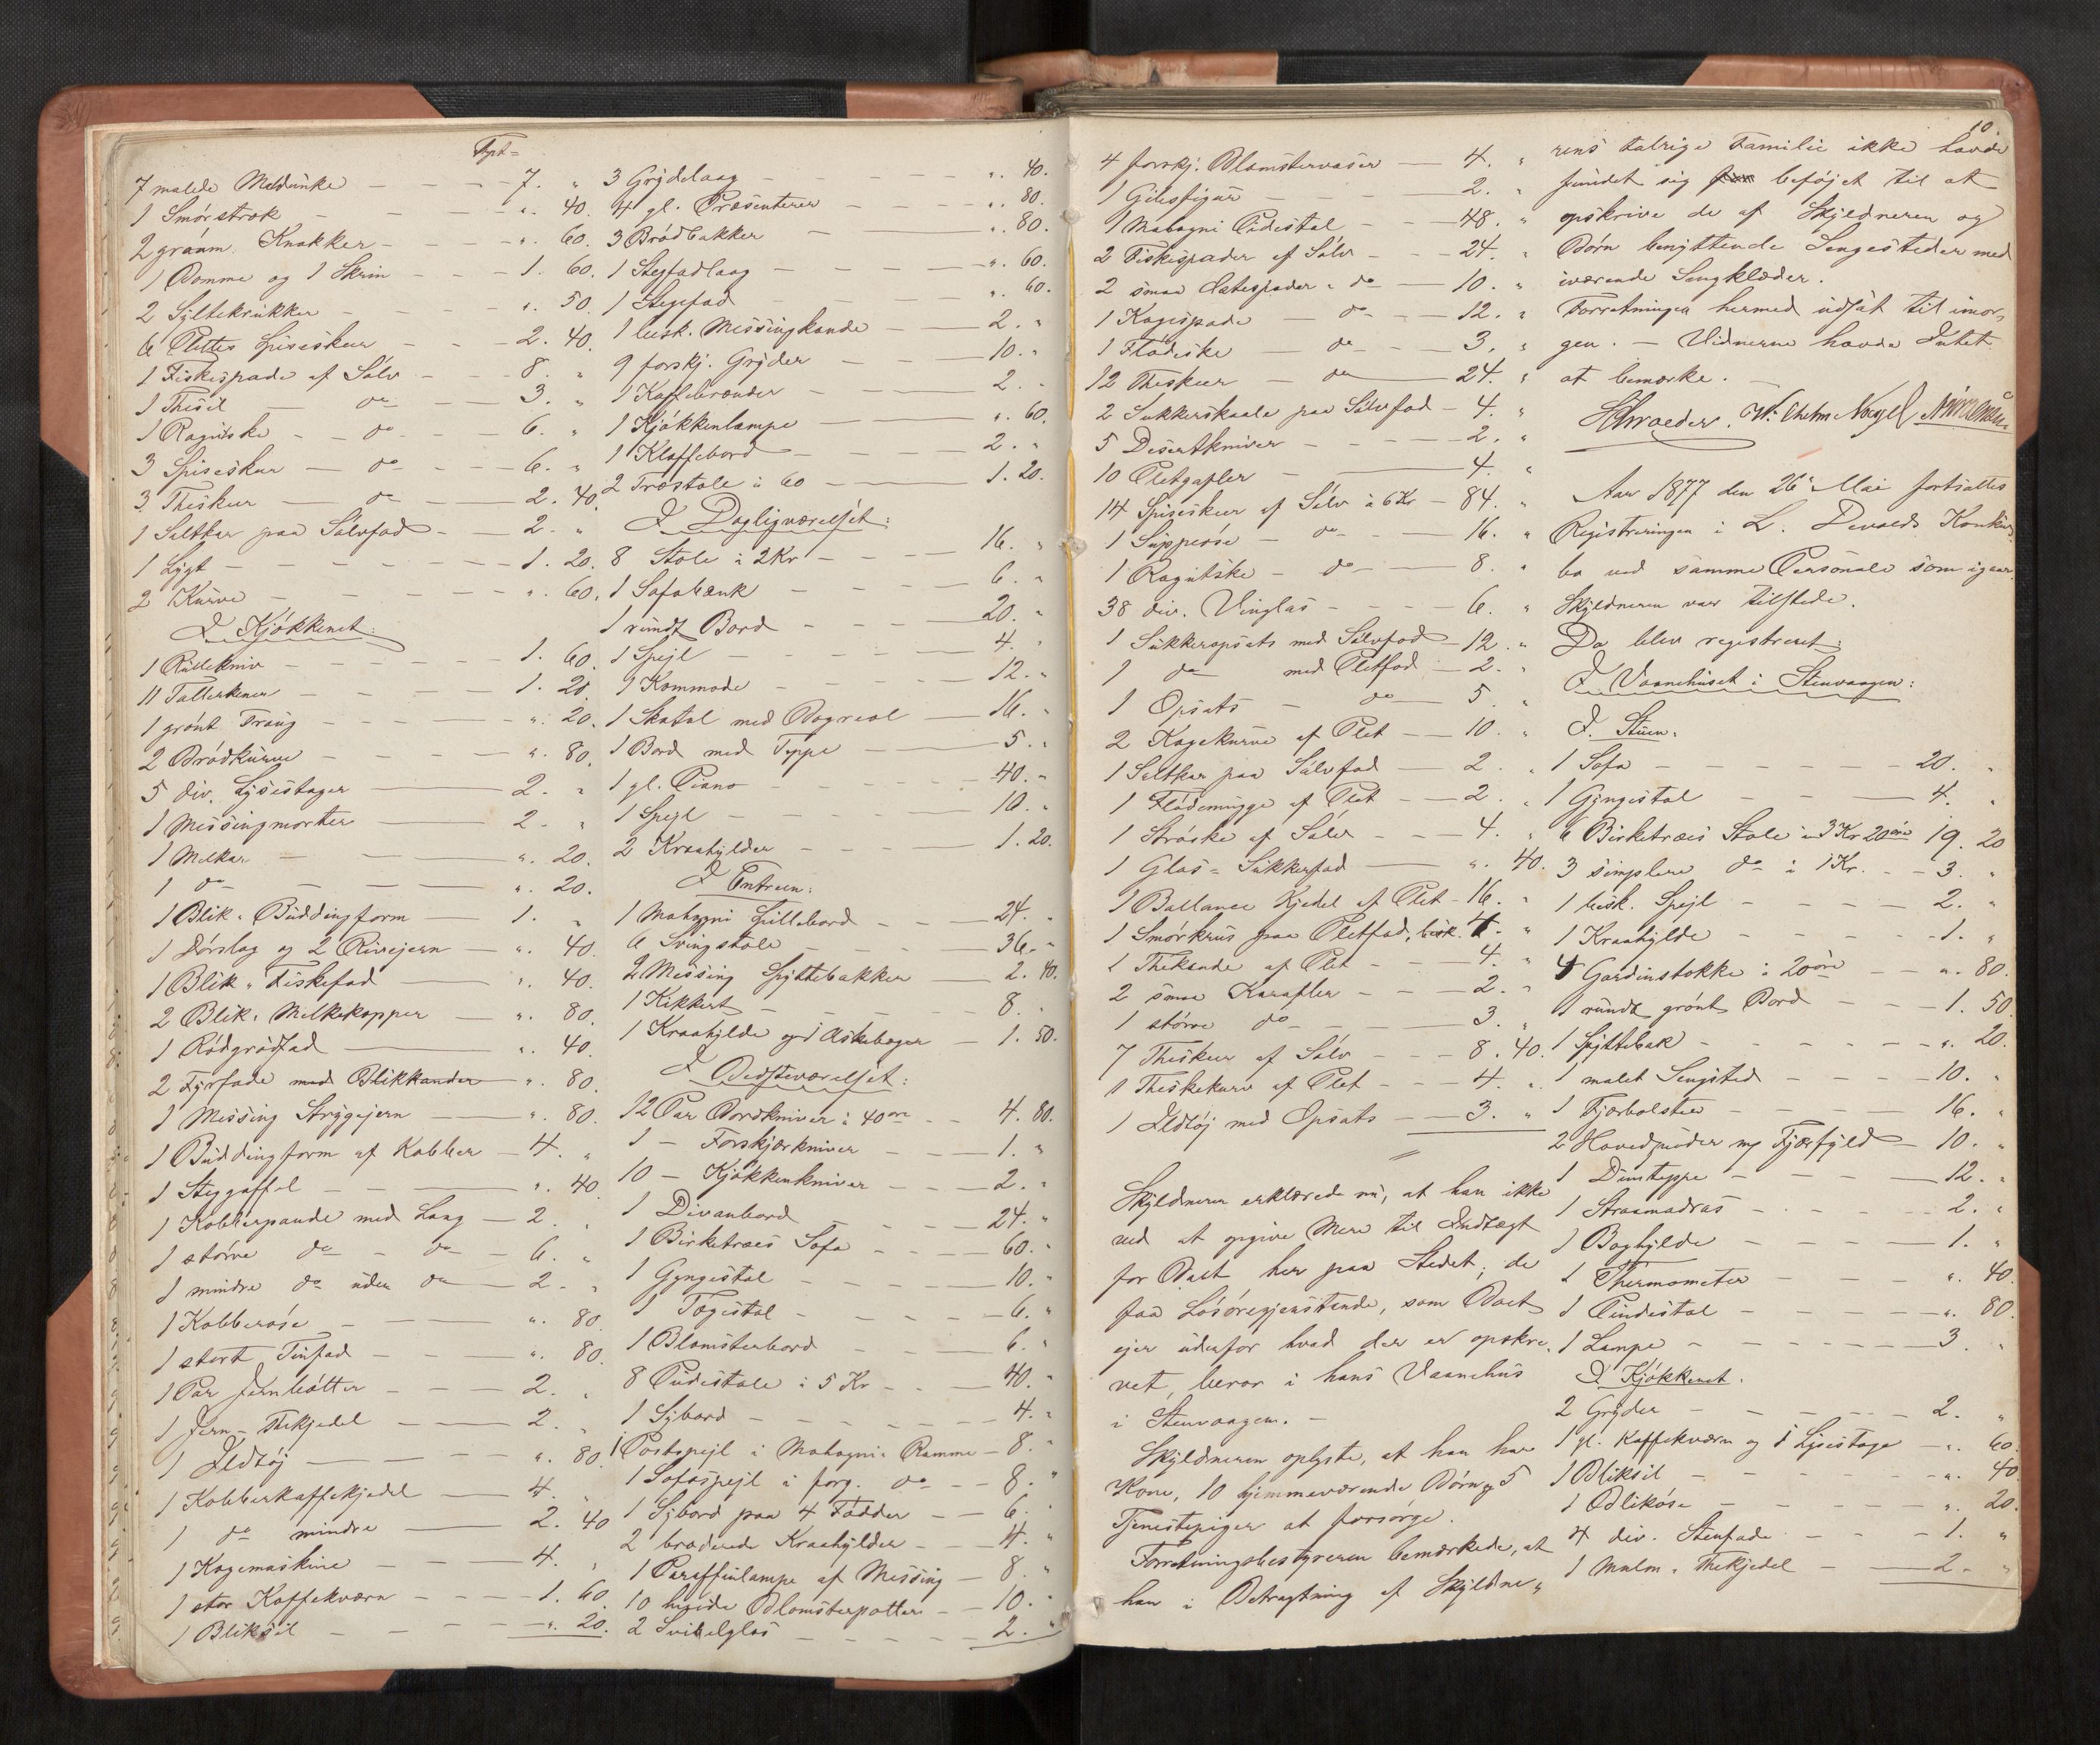 Tept=
7 malede Medunke — 7. "
1 Smörstrok — ". 40.
2 graam. Knakker — ". 60.
1 Bomme og 1 Skrin — 1. 60.
2 Syltekrukker — ". 50.
6 Pletts Spiseskeer — 2. 40.
1 Fiskespade af Sölv — 8. "
1 Thesil — do — 3. "
1 Ragutske — do — 6. "
3 Spiseskeer — do — 6. "
3 Theskeer — do — 2. 40.
1 Saltkar paa Sölvfod — 2. "
1 Lygt — 1. 20.
2 Kurve — ". 60.
I Kjökkenet:
1 Rullekniv — 1. 60.
11 Tallerkener — 1. 20.
1 grönt Traug — ". 20.
2 Brödkurve — ". 80.
5 div. Lysestager — 2. "
1 Messingmorter — 2. "
1 Melkar — ". 20.
1 do — ". 20.
1 Blik-Buddingform — 1. "
1 Dörslag og 2 Rivejern — ". 40.
1 Blik-Fiskefad — ". 40.
2 Blik-Melkekopper — ". 80.
1 Rödgrödfad — ". 40.
2 Fyrfade med Blikkander — ". 80.
1 Messing Strygejern — ". 80.
1 Buddingform af Kobber — 4. "
1 Steggaffel — ". 40.
1 Kobberpande med Laag — 2. "
1 större do — do — 6. "
1 mindre do uden do — 2. "
1 Kobberöse — ". 80.
1 stort Tinfad — ". 80.
1 Par Jernbötter — 2. "
1 Jern-Thekjedel — 2. "
1 Ildtöj — ". 80.
1 Kobberkaffekjedel — 4. "
1 do mindre — 2. 40
1 Kogemaskine — 4. "
1 stor Kaffekværn — 1. 60.
1 Bliksil — ". 20.
3 Grydelaag — ". 40.
4 gl. Præsenterer — ". 80.
3 Brödbakker — ". 80.
1 Stegfadlaag — ". 60.
1 Stegefad — ". 60.
1 besk. Messingkande — 2. "
9 forskj. Gryder — 10. "
1 Kaffebrænder — 2. "
1 Kjökkenlampe — ". 60.
1 Klaffebord — 2. "
2 Træstole à 60 — 1. 20.
I Dagligværelset:
8 Stole à 2 Kr — 16. "
1 Sofabænk — 6. "
1 rundt Bord — 20. "
1 Spejl — 4. "
1 Kommode — 12. "
1 Skatol med Bogreol — 16. "
1 Bord med Teppe — 5. "
1 gl. Piano — 40. "
1 Spejl — 10. "
2 Kraahylder — 1. 20.
I Entreen:
1 Mahogni Spillebord — 24. "
6 Svingstole — 36. "
2 Messing Spyttebakker — 2. 40.
1 Kikkert — 8. "
1 Kraahylde og 1 Askebæger — 1. 50.
I Bedsteværelset:
12 Par Bordkniver à 40 öre — 4. 80.
1 — Forskjærkniver — 1. "
10 — Kjökkenkniver — 2. "
1 Divanbord — 24. "
1 Birketræes Sofa — 60. "
1 Gyngestol — 10. "
1 Togestol — 6. "
1 Blomsterbord — 6. "
8 Pudestole à 5 Kr — 40. "
1 Sybord — 4. "
1 Postspejl i Mahogni-Ramme — 8. "
1 Sofaspejl i forg. do — 8. "
1 Sybord paa 4 Födder — 6. "
2 broderede Kraahylder — 4. "
1 Paraffinlampe af Messing — 8. "
10 hvide Blomsterpotter — 10. "
2 Svibelglas — 2. "
4 forskj. Blomstervaser — 4. "
1 Gibsfigur — 2. "
1 Mahogni Pidestal — 48. "
2 Fiskespader af Sölv — 24. "
2 smaa Ostespader " do — 10. "
1 Kagespade — do — 12. "
1 Flödeske — do — 3. "
12 Theskeer — do — 24. "
2 Sukkerskaale paa Sölvfod — 4. "
5 Desertkniver — 2. "
10 Pletgafler — 4. "
14 Spiseskeer af Sölv à 6 Kr — 84. "
1 Suppeöse — do — 16. "
1 Ragutske — do — 8. "
38 div. Vinglas — 6. "
1 Sukkeropsats med Sölvfod — 12. "
1 do med Pletfod — 2. "
1 Opsats — do — 5. "
2 Kagekurve af Plet — 10. "
1 Saltkar paa Sölvfod — 2. "
1 Flödemugge af Plet — 2. "
1 Ströske af Sölv — 4. "
1 Glas-Sukkerfad — ". 40.
1 Ballance Kjedel af Plet — 16. "
1 Smörkrus paa Pletfod, besk. 4. "
1 Thekande af Plet — 4. "
2 smaa Karafler — 2. "
1 större do — 3. "
7 Theskeer af Sölv — 8. 40.
1 Theskekurv af Plet — 4. "
1 Ildtöj med Opsats — 3. "
Skyldneren erklærede nu, at han ikke
ved at opgive mere til Indtægt
for Boet her paa Stedet; de
faa Lösöregjenstande, som Boet
ejer udenfor hvad der er opskre-
vet, beror i hans Vaanehus
i Stenvaagen. —
Skyldneren oplyste, at han har
Kone, 10 hjemmeværende Börn og 5
Tjenestepiger at forsörge.
Forretningsbestyreren bemærkede, at
han i Betragtning af Skyldne-
10.
rens talrige Familie ikke havde
fundet sig beföjet til at
opskrive de af Skyldneren og
Börn benyttende Sengesteder med
iværende Sengklæder.
Forretningen hermed udsat til imor-
gen. — Vidnerne havde Intet
at bemærke. —
Schroeder. Wilhelm Nagel
Aar 1877 den 26de Mai fortsattes
Registreringen i L. Devolds Konkurs-
bo ved samme Personale som igaar.
Skyldneren var tilstede.
Da blev registreret:
I Vaanehuset i Stenvaagen:
I Stuen.
1 Sofa — 20. "
1 Gyngestol — 4. "
6 Birketræes Stole à 3 Kr 20 öre 19. 20
3 simplere do à 1 Kr. — 3. "
1 besk. Spejl — 2. "
1 Kraahylde — 1. "
4 Gardinstokke à 20 öre — ". 80.
1 rundt grönt Bord — 1. 50.
1 Spyttebak — ". 20.
1 malet Sengsted — 10. "
1 Fjærbolster — 16. "
2 Hovedpuder m/ Fjærfyld — 10. "
1 Dunteppe — 12. "
1 Straamadras — 2. "
1 Boghylde — 1. "
1 Thermometer — ". 40.
1 Pindestol — ". 80.
1 Lampe — 3. "
I Kjökkenet.
2 Gryder — 2. "
1 gl. Kaffekværn og 1 Lysestage — ". 60.
1 Bliksil — ". 40
1 Blikøse — ". 20.
4 div. Stenfade — 1. "
1 Malm-Thekjedel — 2. "